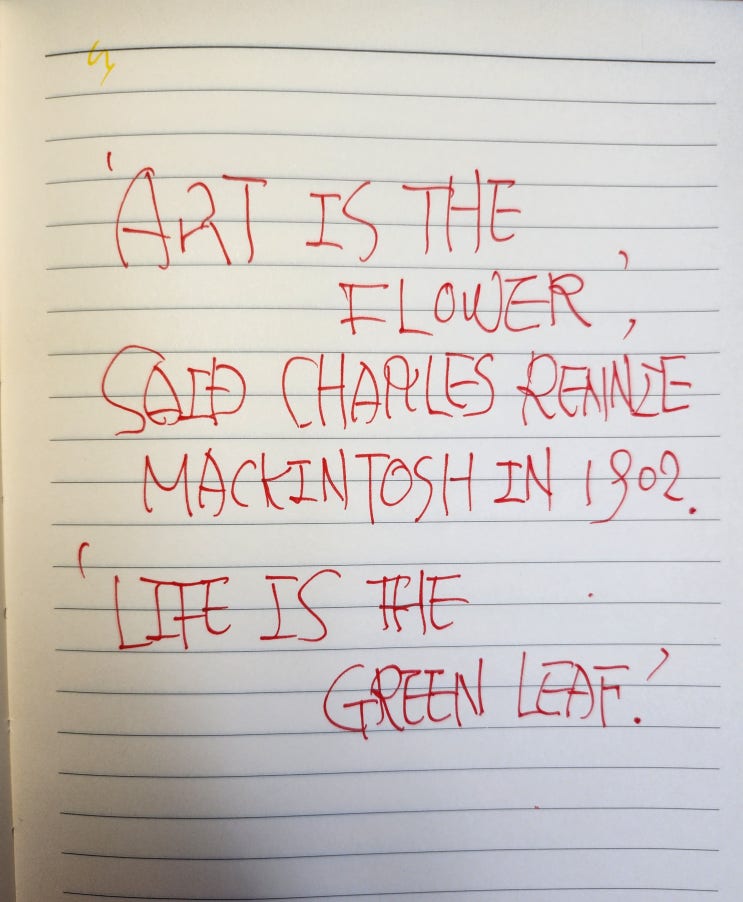 'ART IS THE
FLOWER',
SAID CHARLES RENNIE
MACKINTOSH IN 1902.
'LIFE IS THE
GREEN LEAF.'